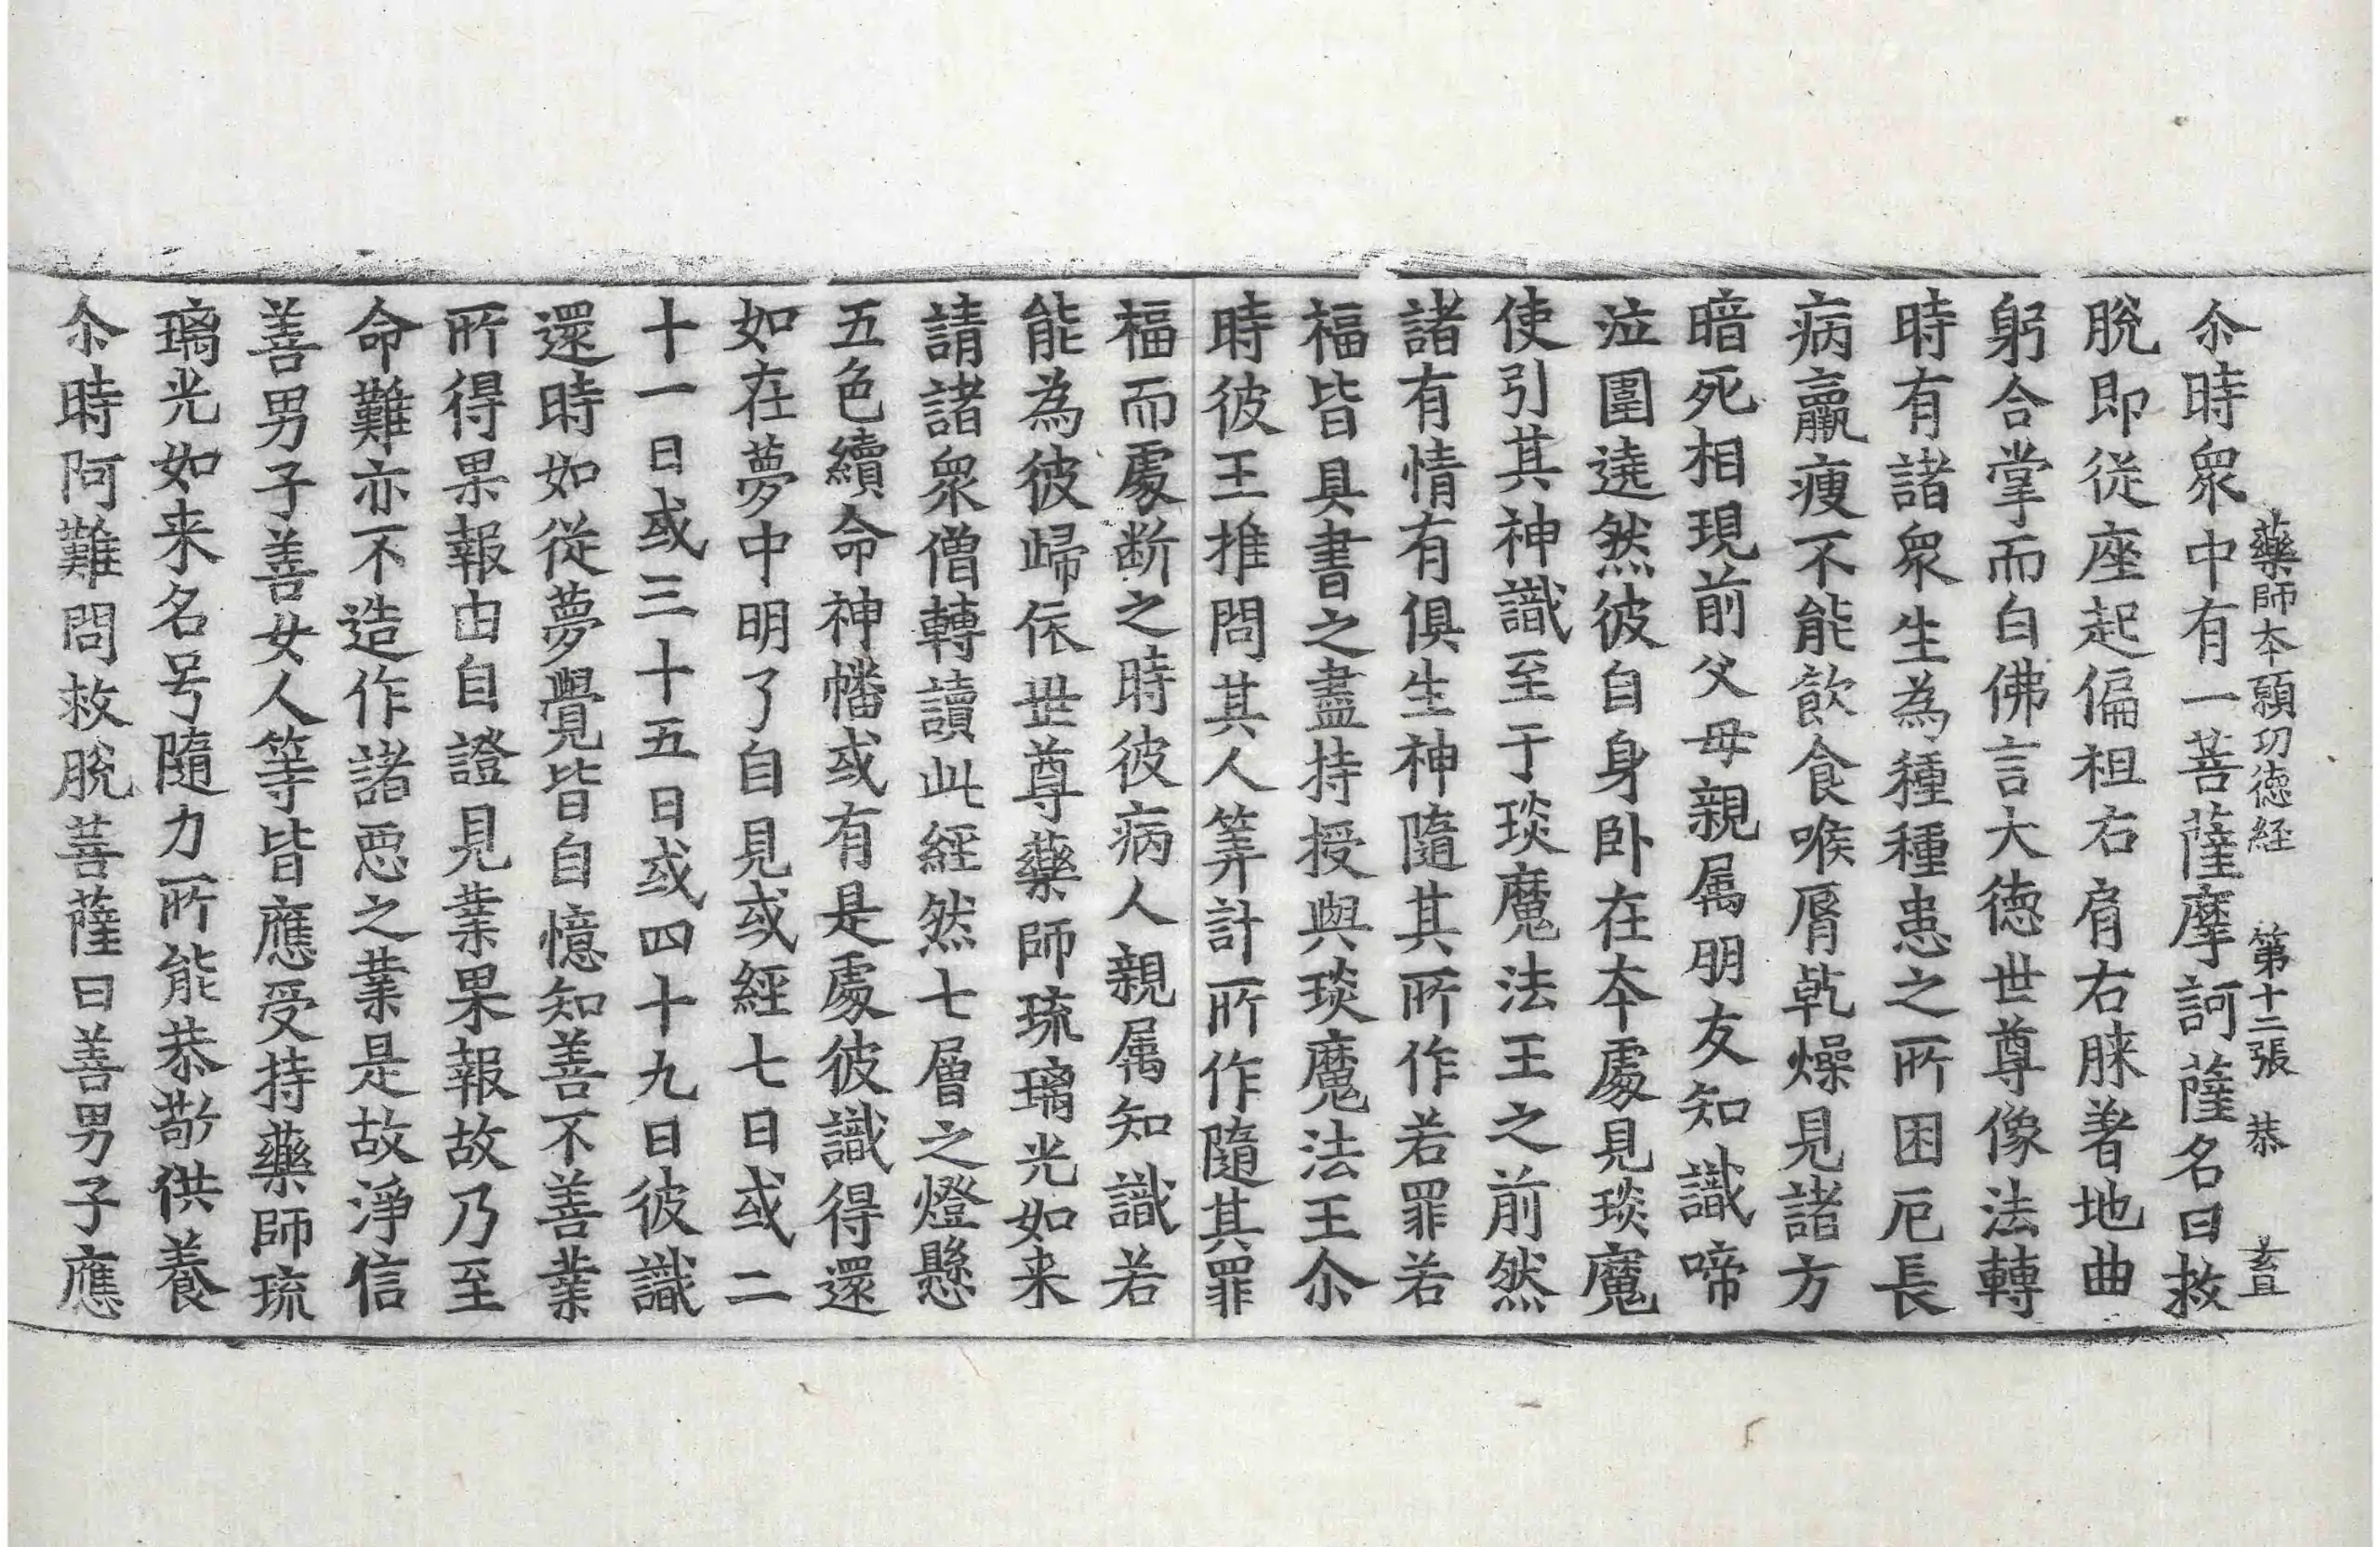 藥師本願功德経　第十二張　恭
尒時衆中有一菩薩摩訶薩名曰救
脫即從座起偏袒右肩右膝著地曲
躬合掌而白佛言大德世尊像法轉
時有諸衆生為種種患之所困厄長
病羸瘦不能飲食喉脣乾燥見諸方
暗死相現前父母親属朋友知識啼
泣圍遶然彼自身卧在本處見琰魔
使引其神識至于琰魔法王之前然
諸有情有俱生神隨其所作若罪若
福皆具書之盡持授與琰魔法王尒
時彼王推問其人筭計所作隨其罪
福而處断之時彼病人親属知識若
能為彼歸依世尊藥師琉璃光如来
請諸衆僧轉讀此經然七層之燈懸
五色續命神幡或有是處彼識得還
如在夢中明了自見或經七日或二
十一日或三十五日或四十九日彼識
還時如從夢覺皆自憶知善不善業
所得果報由自證見業果報故乃至
命難亦不造作諸惡之業是故淨信
善男子善女人等皆應受持藥師琉
璃光如来名号隨力所能恭敬供養
尒時阿難問救脫菩薩曰善男子應